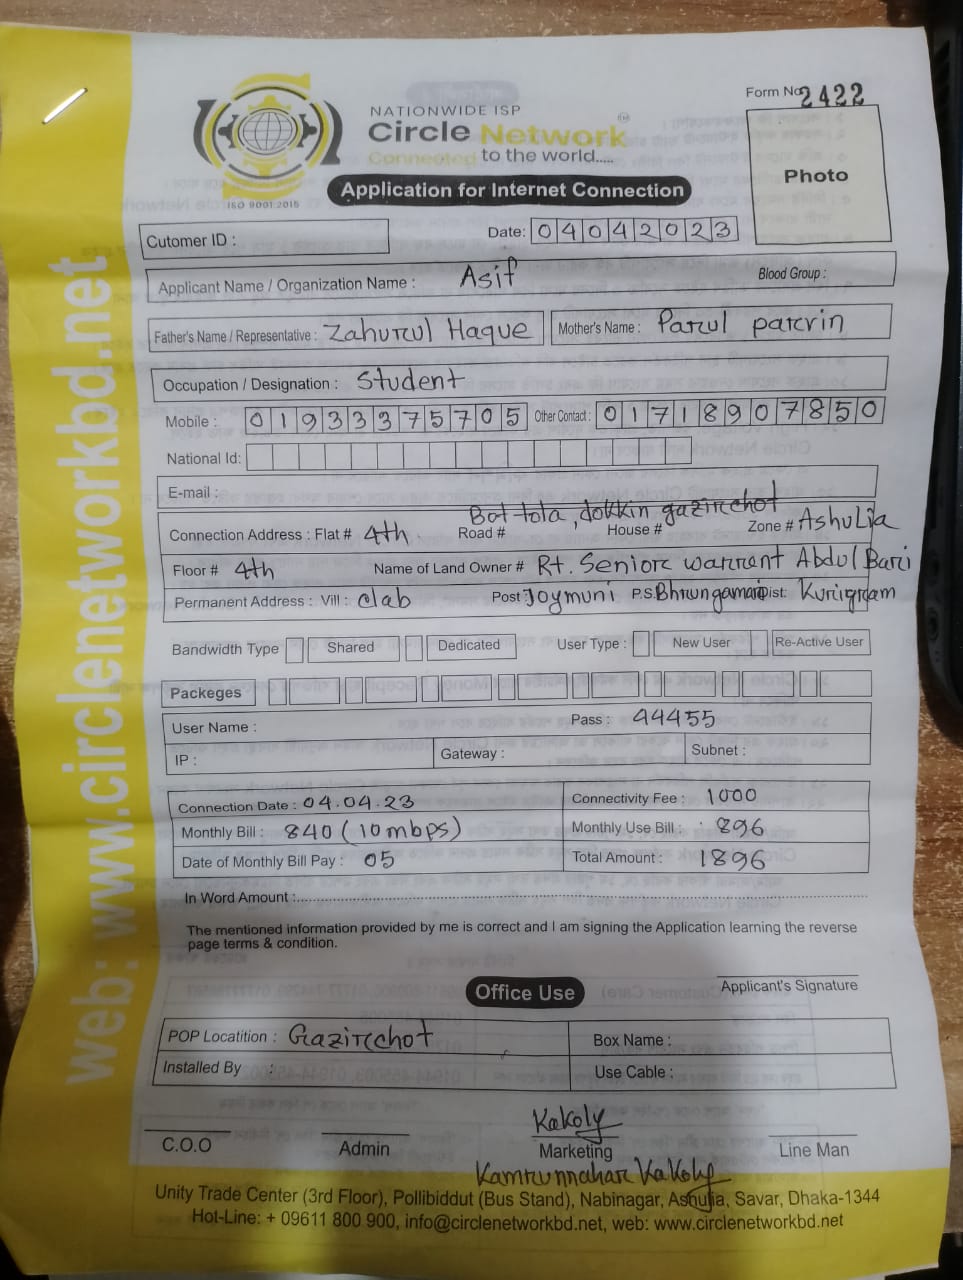 Form No 2422
NATIONWIDE ISP
Circle Network
Connected to the world.....
ISO 9001:2015
Application for Internet Connection
Photo
Cutomer ID :
Date: 04042023
Applicant Name / Organization Name : Asif Blood Group :
Father's Name / Representative : Zahurul Haque Mother's Name : Parul parvin
Occupation / Designation : Student
Mobile : 01933375705 Other Contact : 01718907850
National Id:
E-mail :
Bot tola, dokkin gazirchot
Connection Address : Flat # 4th Road # House # Zone # Ashulia
Floor # 4th Name of Land Owner # Rt. Senior warrent Abdul Bari
Permanent Address : Vill : clab Post : Joymuni P.S. Bhrungamari Dist: Kurigram
Bandwidth Type Shared Dedicated User Type : New User Re-Active User
Packeges
User Name : Pass : 44455
IP : Gateway : Subnet :
Connection Date : 04.04.23 Connectivity Fee : 1000
Monthly Bill : 840 (10mbps) Monthly Use Bill : 896
Date of Monthly Bill Pay : 05 Total Amount : 1896
In Word Amount :
The mentioned information provided by me is correct and I am signing the Application learning the reverse
page terms & condition.
Applicant's Signature
Office Use
POP Locatition : Gazirchot Box Name :
Installed By : Use Cable :
Kakoly
C.O.O Admin Marketing Line Man
Kamrunnahar Kakoly
Unity Trade Center (3rd Floor), Pollibiddut (Bus Stand), Nabinagar, Ashulia, Savar, Dhaka-1344
Hot-Line: + 09611 800 900, info@circlenetworkbd.net, web: www.circlenetworkbd.net
web: www.circlenetworkbd.net